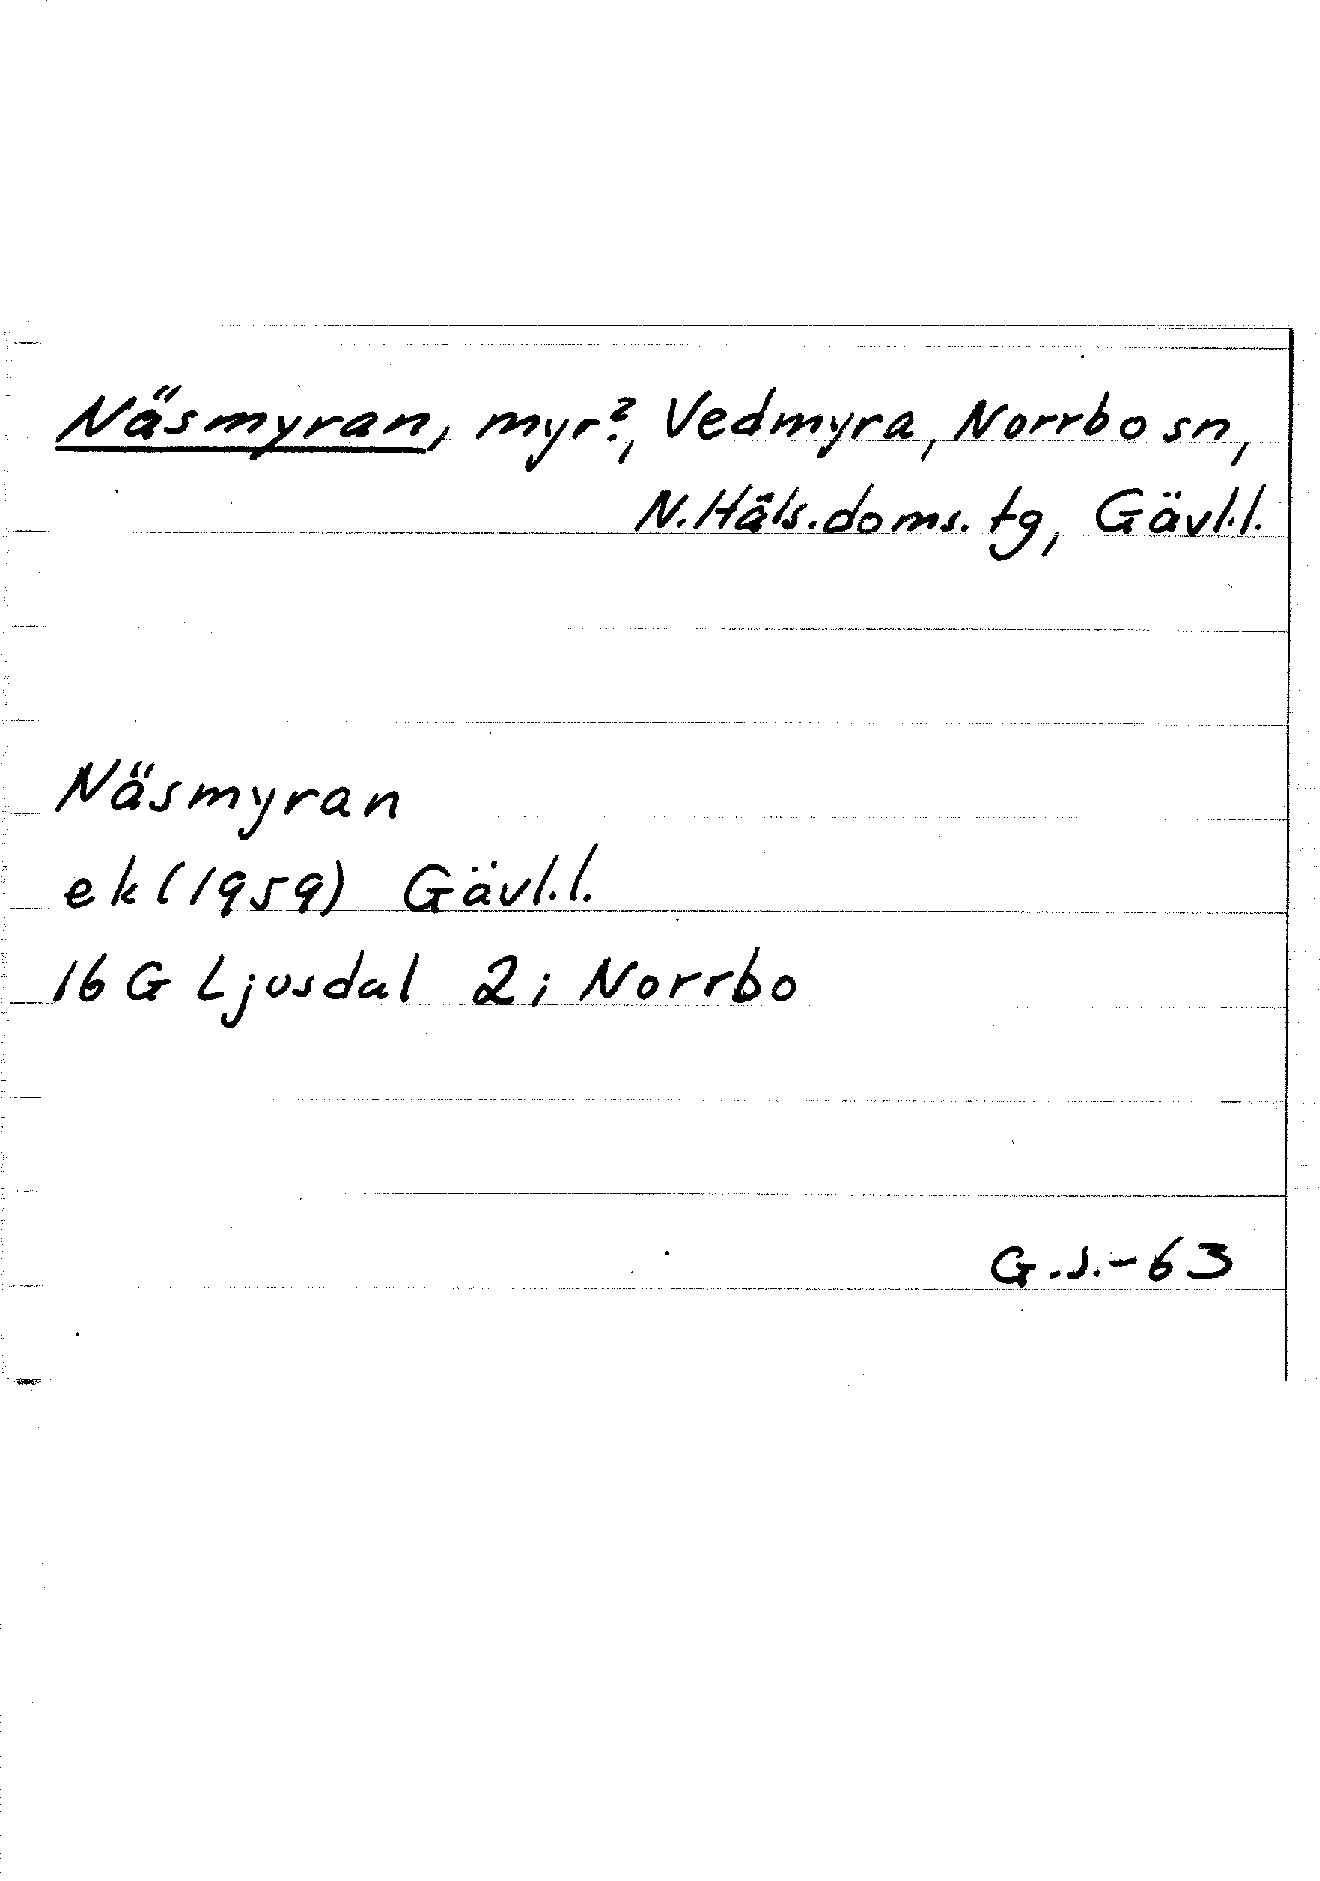 Näsmyran, myr?, Vedmyra, Norrbo sn,
N. Häls. doms. tg, Gävl.l.
Näsmyran
ek (1959) Gävl.l.
16 G Ljusdal 2 i Norrbo
G.J.-63